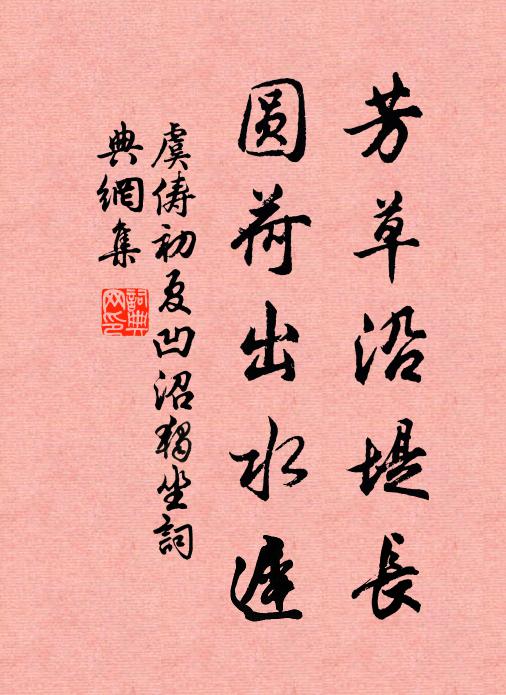 芳草沿堤長
圆荷出水遲
虞儔初夏凹沼獨坐詞
典網集
詞典网印